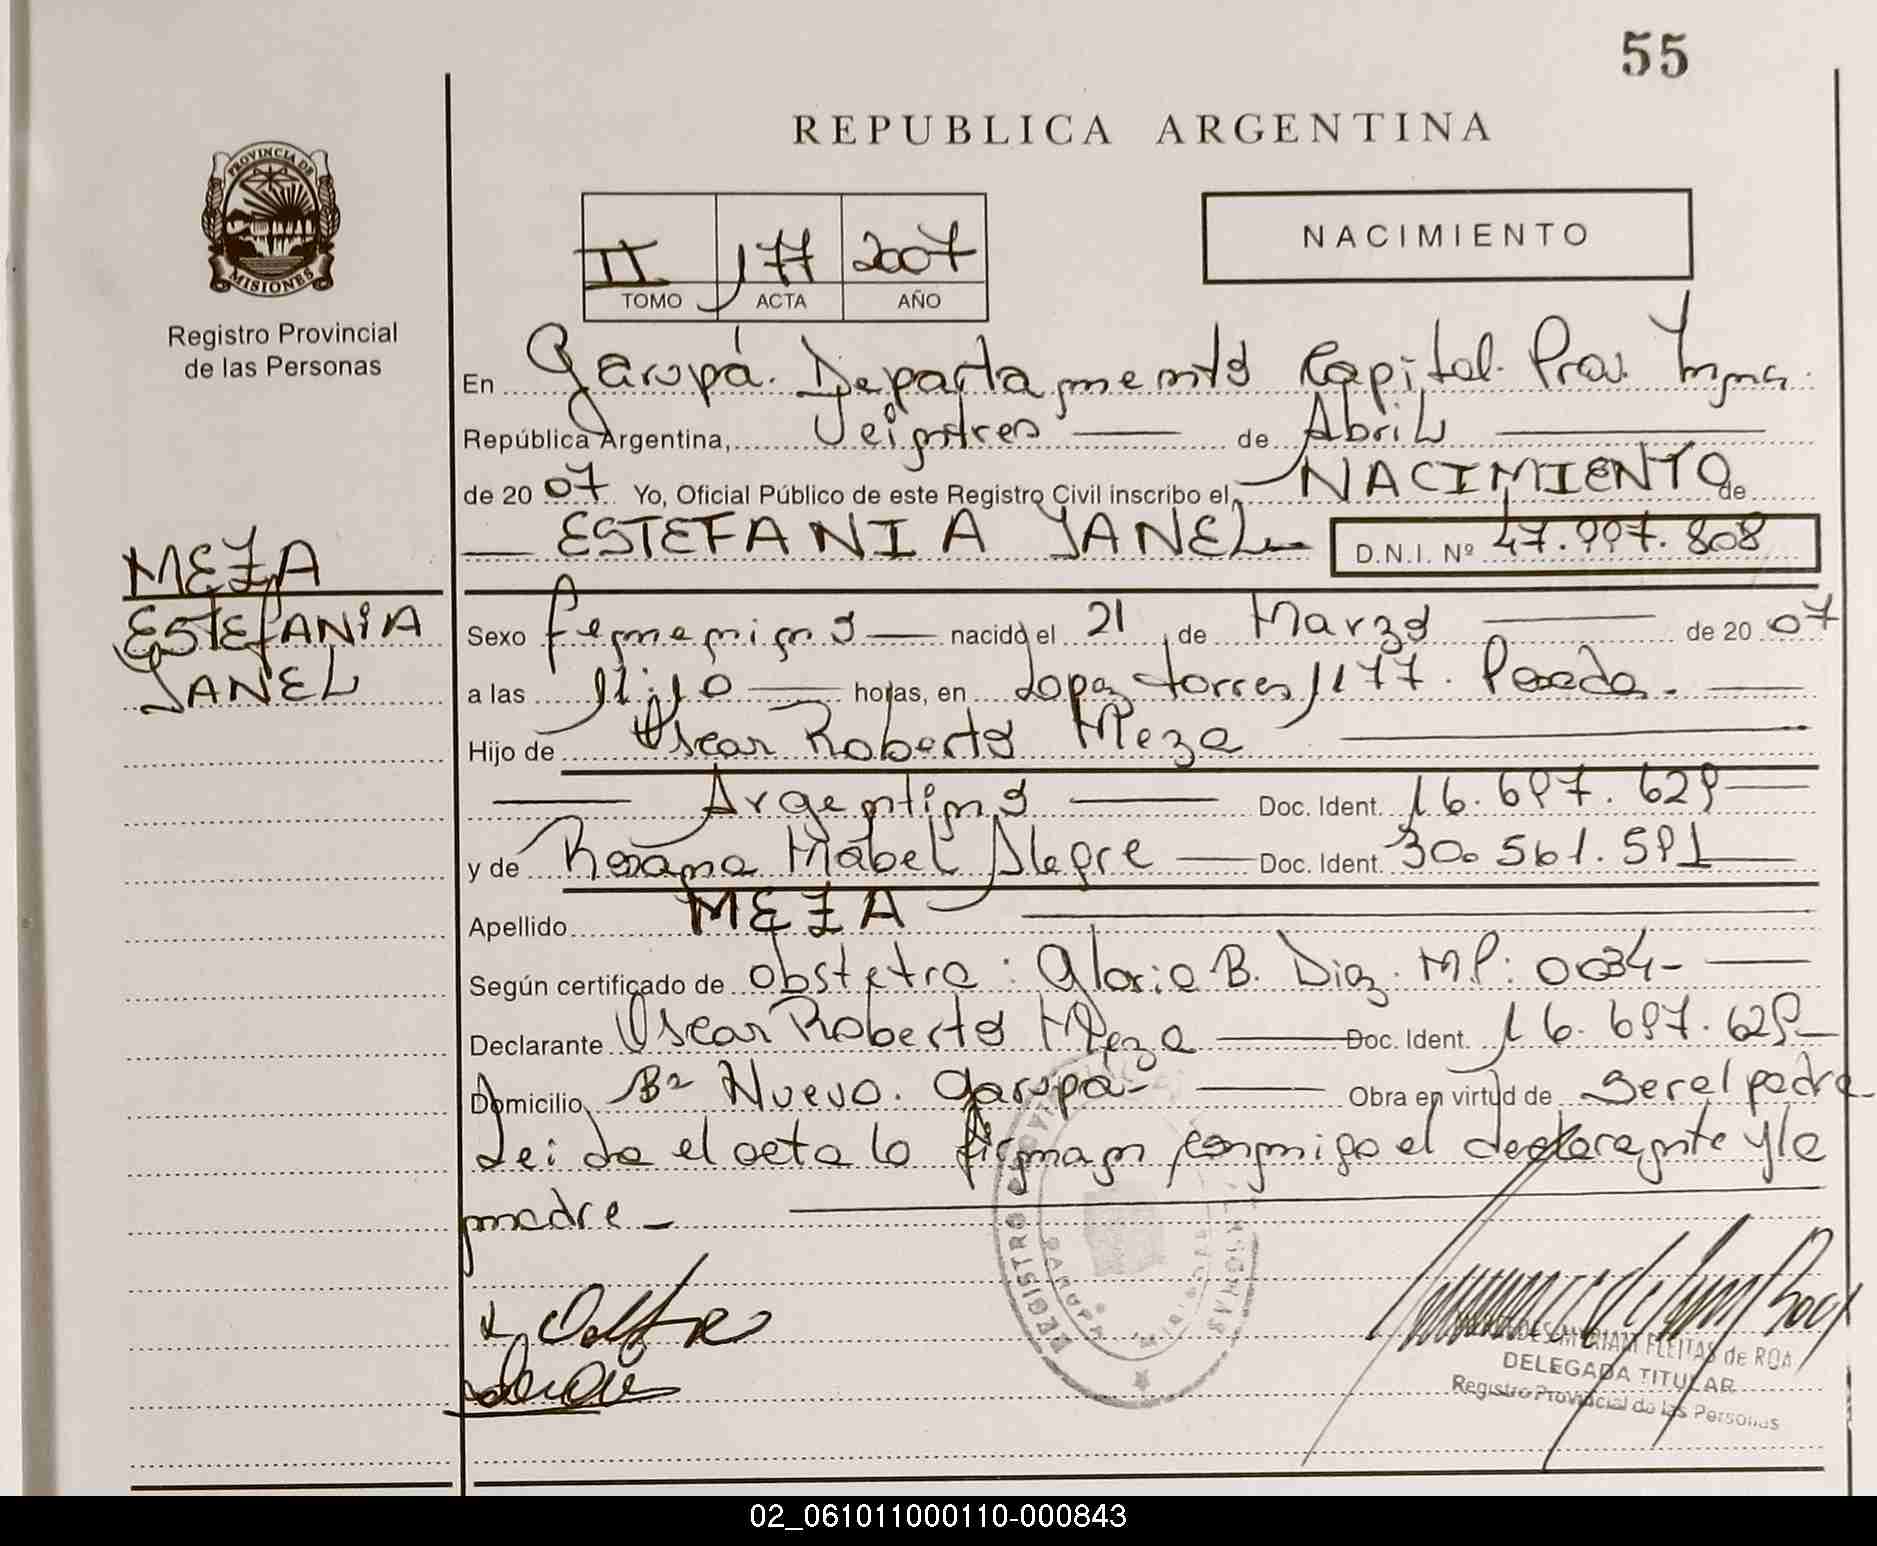 55
REPUBLICA ARGENTINA
PROVINCIA DE
MISIONES
Registro Provincial
de las Personas
II 177 2007
TOMO ACTA AÑO
NACIMIENTO
En Garupá. Departamento Capital. Prov. Mnes.
República Argentina, Veintitres de Abril
de 2007 Yo, Oficial Público de este Registro Civil inscribo el NACIMIENTO de
ESTEFANIA YANEL D.N.I. Nº 47.997.808
MEZA
ESTEFANIA
YANEL
Sexo femenino nacido el 21 de Marzo de 2007
a las 11:10 horas, en Lopez torres 1177. Posadas.
Hijo de Oscar Roberto Meza
Argentino Doc. Ident. 16.697.629
y de Roxana Mabel Alegre Doc. Ident. 30.561.591
Apellido MEZA
Según certificado de obstetra: Gloria B. Diaz. M.P: 0034-
Declarante Oscar Roberto Meza Doc. Ident. 16.697.629
Domicilio Bº Nuevo. Garupá- Obra en virtud de Ser el padre
Leida el acta la firman conmigo el declarante y la
madre-
REGISTRO PROVINCIAL PERSONAS
GARUPA MISIONES
MYRIAM FLEITAS de ROA
DELEGADA TITULAR
Registro Provincial de las Personas
02_061011000110-000843